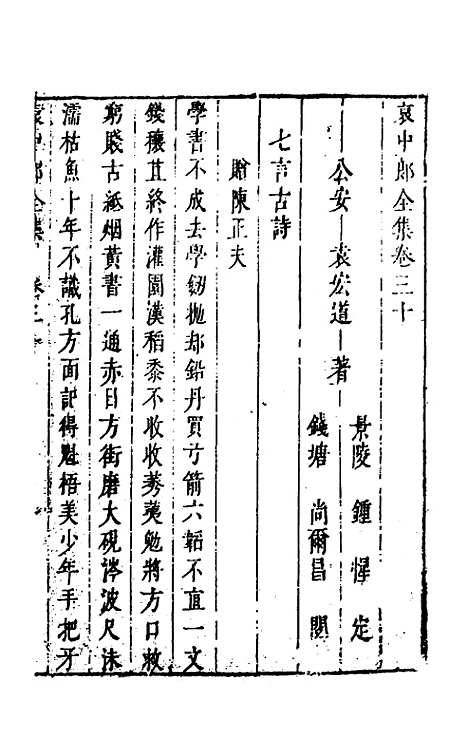 袁中郎全集卷三十
景陵 鍾惺 定
公安 袁宏道 著
錢塘 尚爾昌 閱
七言古詩
贈陳正夫
學書不成去學劒拋却鉛丹買寸箭六韜不直一文
錢穰苴終作灌園漢稻黍不收收荑勉將方口救
窮賤古紙烟黃書一通赤日方街磨大硯涔波尺沫
濡枯魚十年不識孔方面記得魁梧美少年手把牙
袁中郎全集 卷三